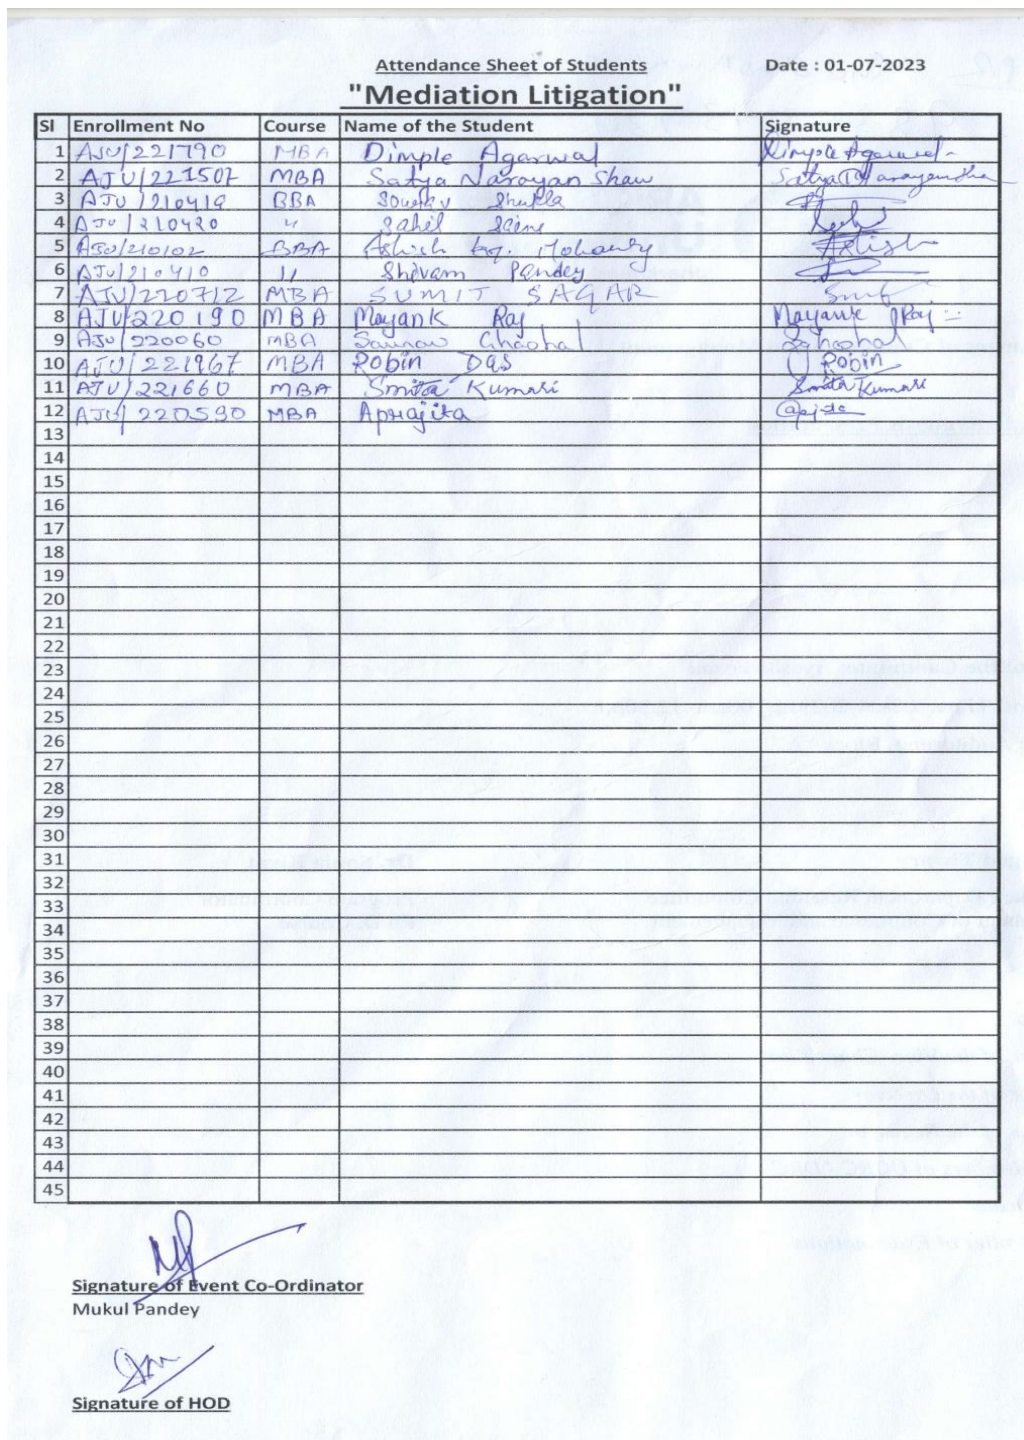 Attendance Sheet of Students Date : 01-07-2023
"Mediation Litigation"
Sl Enrollment No Course Name of the Student Signature
1 AJU/221790 MBA Dimple Agarwal Dimple Agarwal
2 AJU/221507 MBA Satya Narayan Shaw Satya Narayan Shaw
3 AJU/210419 BBA Sourav Shukla
4 AJU/210420 " Sahil
5 AJU/210102 BBA Ashish Kr. Mohanty Ashish
6 AJU/210410 " Shivam Pandey
7 AJU/220712 MBA SUMIT SAGAR
8 AJU/220190 MBA Mayank Raj Mayank Raj
9 AJU/220060 MBA Saurav Ghoshal SGhoshal
10 AJU/221967 MBA Robin Das Robin
11 AJU/221660 MBA Smita Kumari Smita Kumari
12 AJU/220590 MBA Aprajita
13
14
15
16
17
18
19
20
21
22
23
24
25
26
27
28
29
30
31
32
33
34
35
36
37
38
39
40
41
42
43
44
45
Signature of Event Co-Ordinator
Mukul Pandey
Signature of HOD